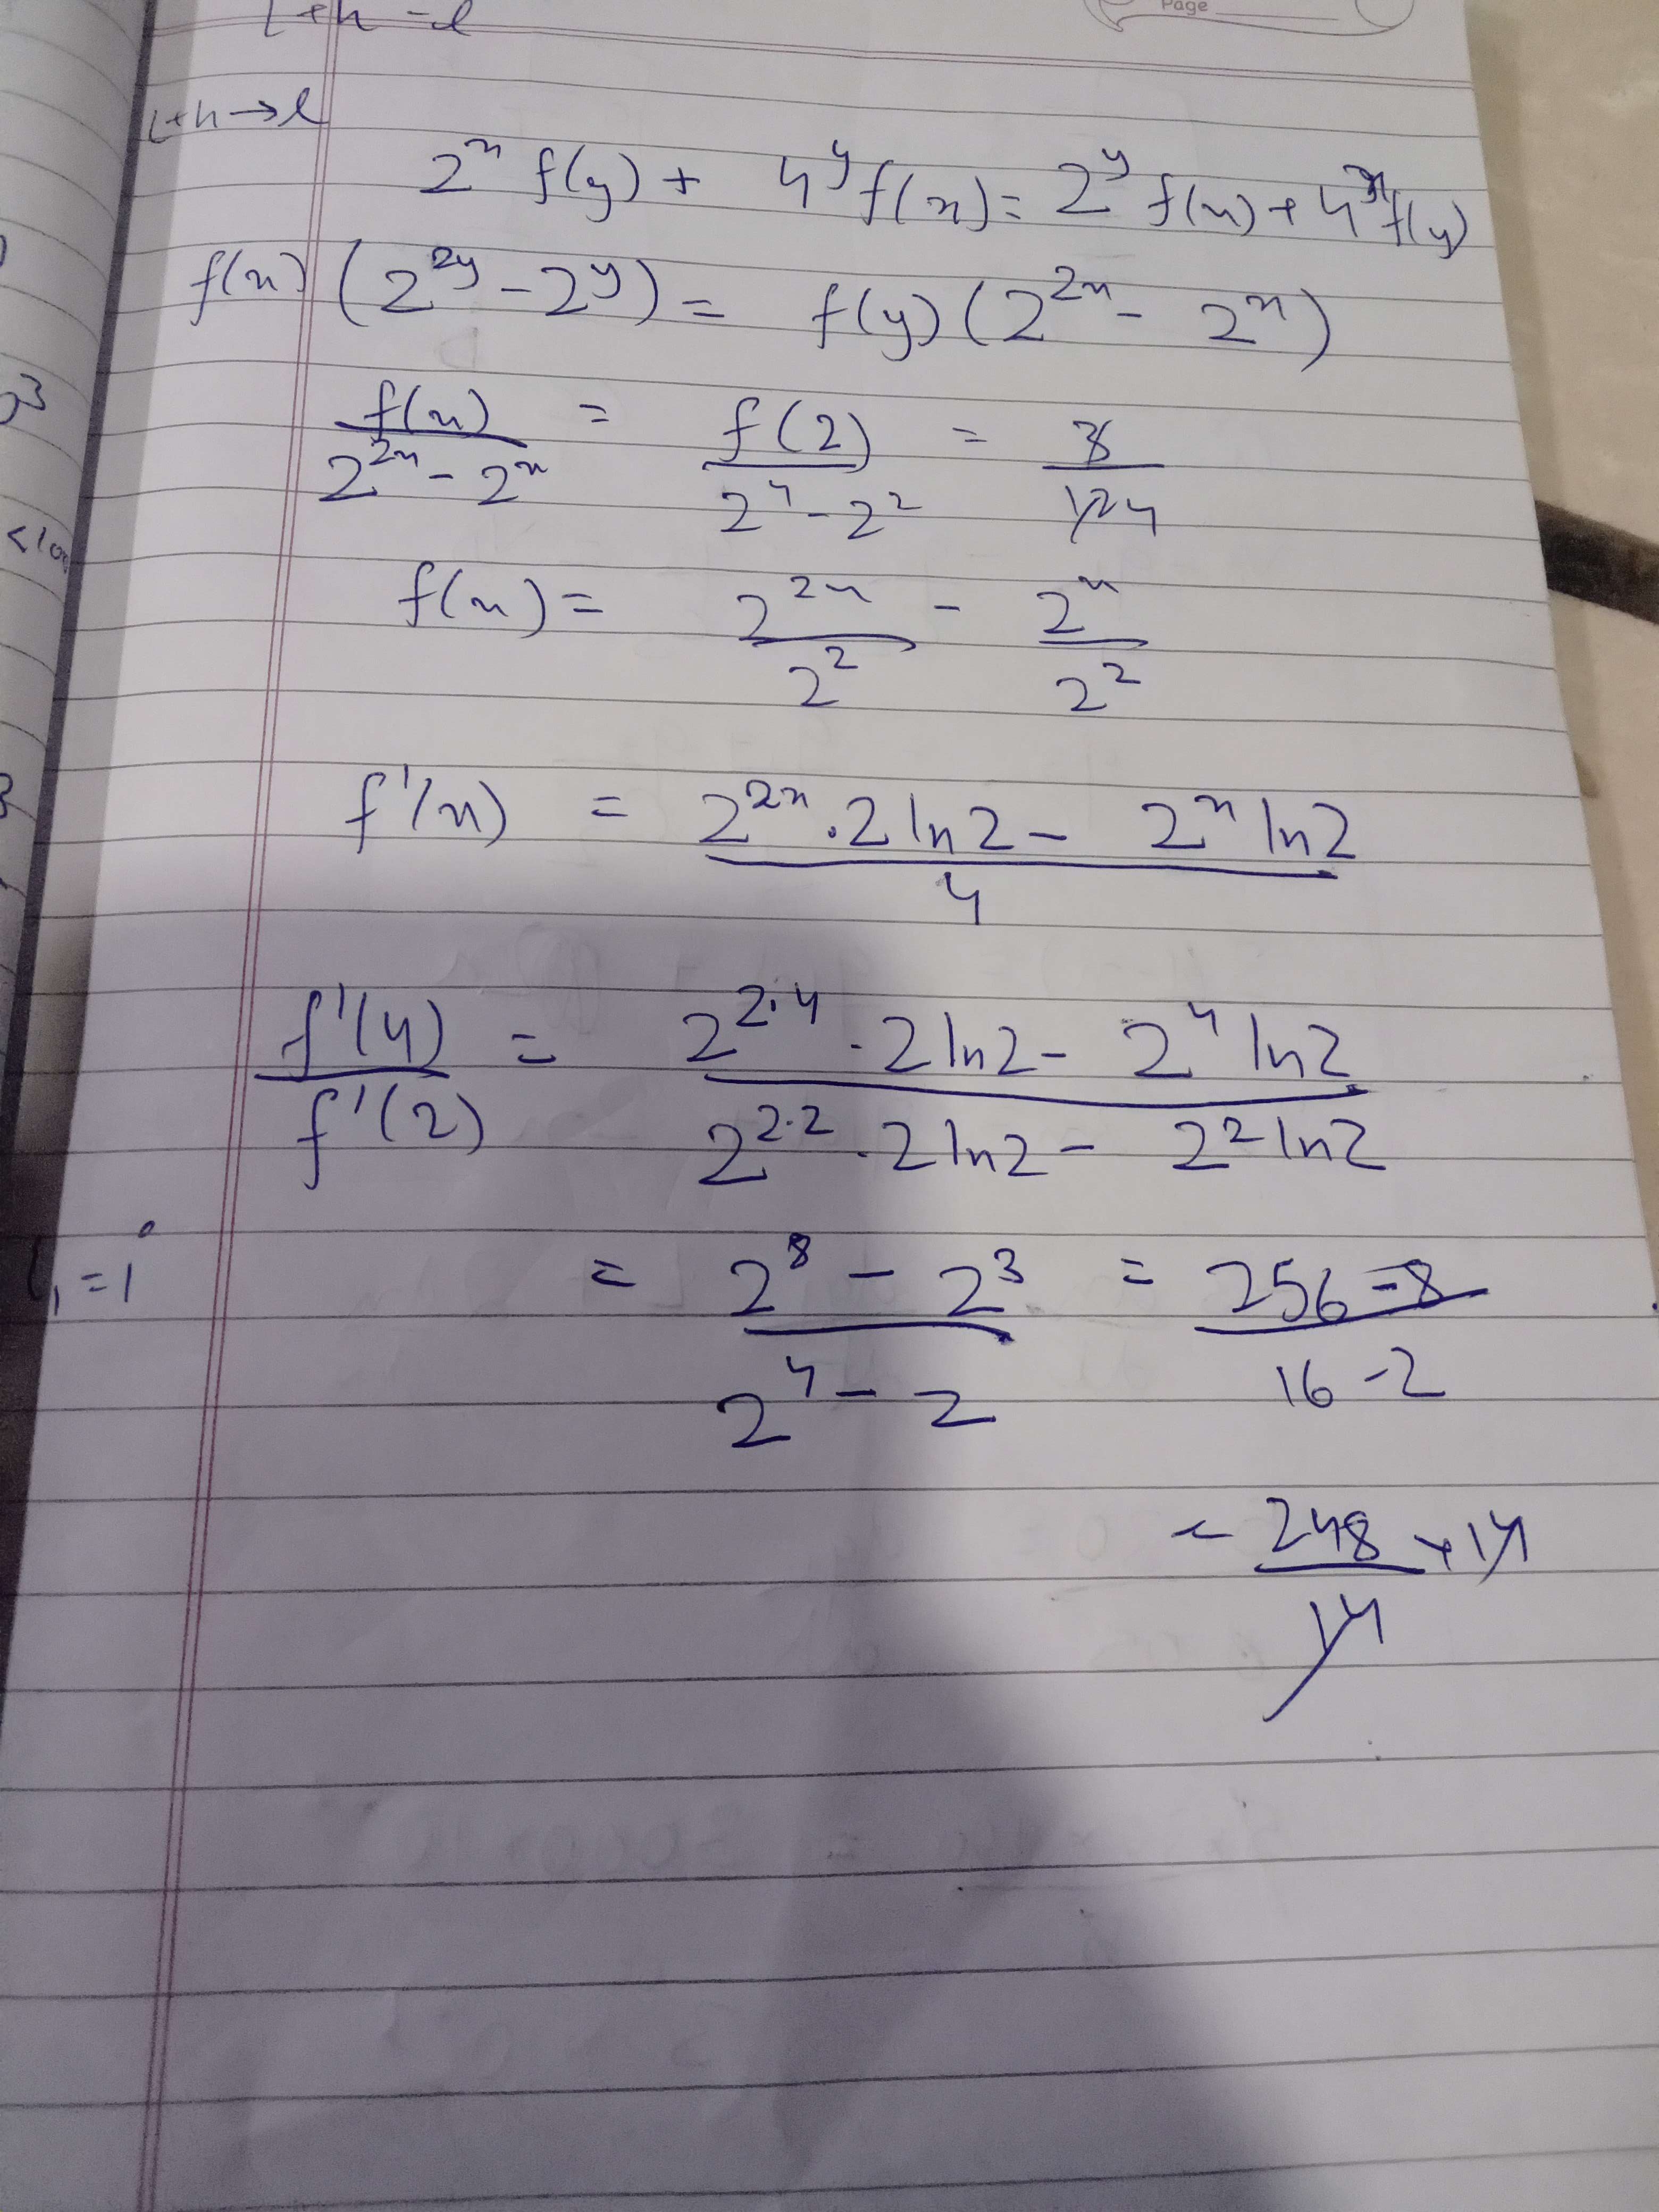 Page
L+h → l
2^x f(y) + 4^y f(x) = 2^y f(x) + 4^x f(y)
f(x) (2^{2y} - 2^y) = f(y) (2^{2x} - 2^x)
f(x) / (2^{2x} - 2^x) = f(2) / (2^4 - 2^2) = 3 / 12 4
f(x) = 2^{2x} / 2^2 - 2^x / 2^2
f'(x) = (2^{2x} . 2 ln2 - 2^x ln2) / 4
f'(4) / f'(2) = (2^{2.4} . 2 ln2 - 2^4 ln2) / (2^{2.2} . 2 ln2 - 2^2 ln2)
= (2^8 - 2^3) / (2^4 - 2) = (256 - 8) / (16 - 2)
= 248 / 14 × 14